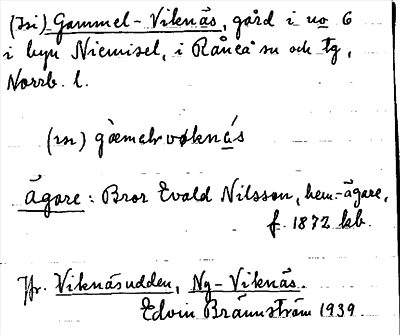 (Isi) Gammel-Viknäs, gård i no 6
i byn Niemisel, i Råneå sn och tg,
Norrb. l.
(ısı)
ägare: Bror Evald Nilsson, hem.-ägare,
f. 1872 kb.
Jfr. Viknäsudden, Ny-Viknäs.
Edvin Brännström 1939.